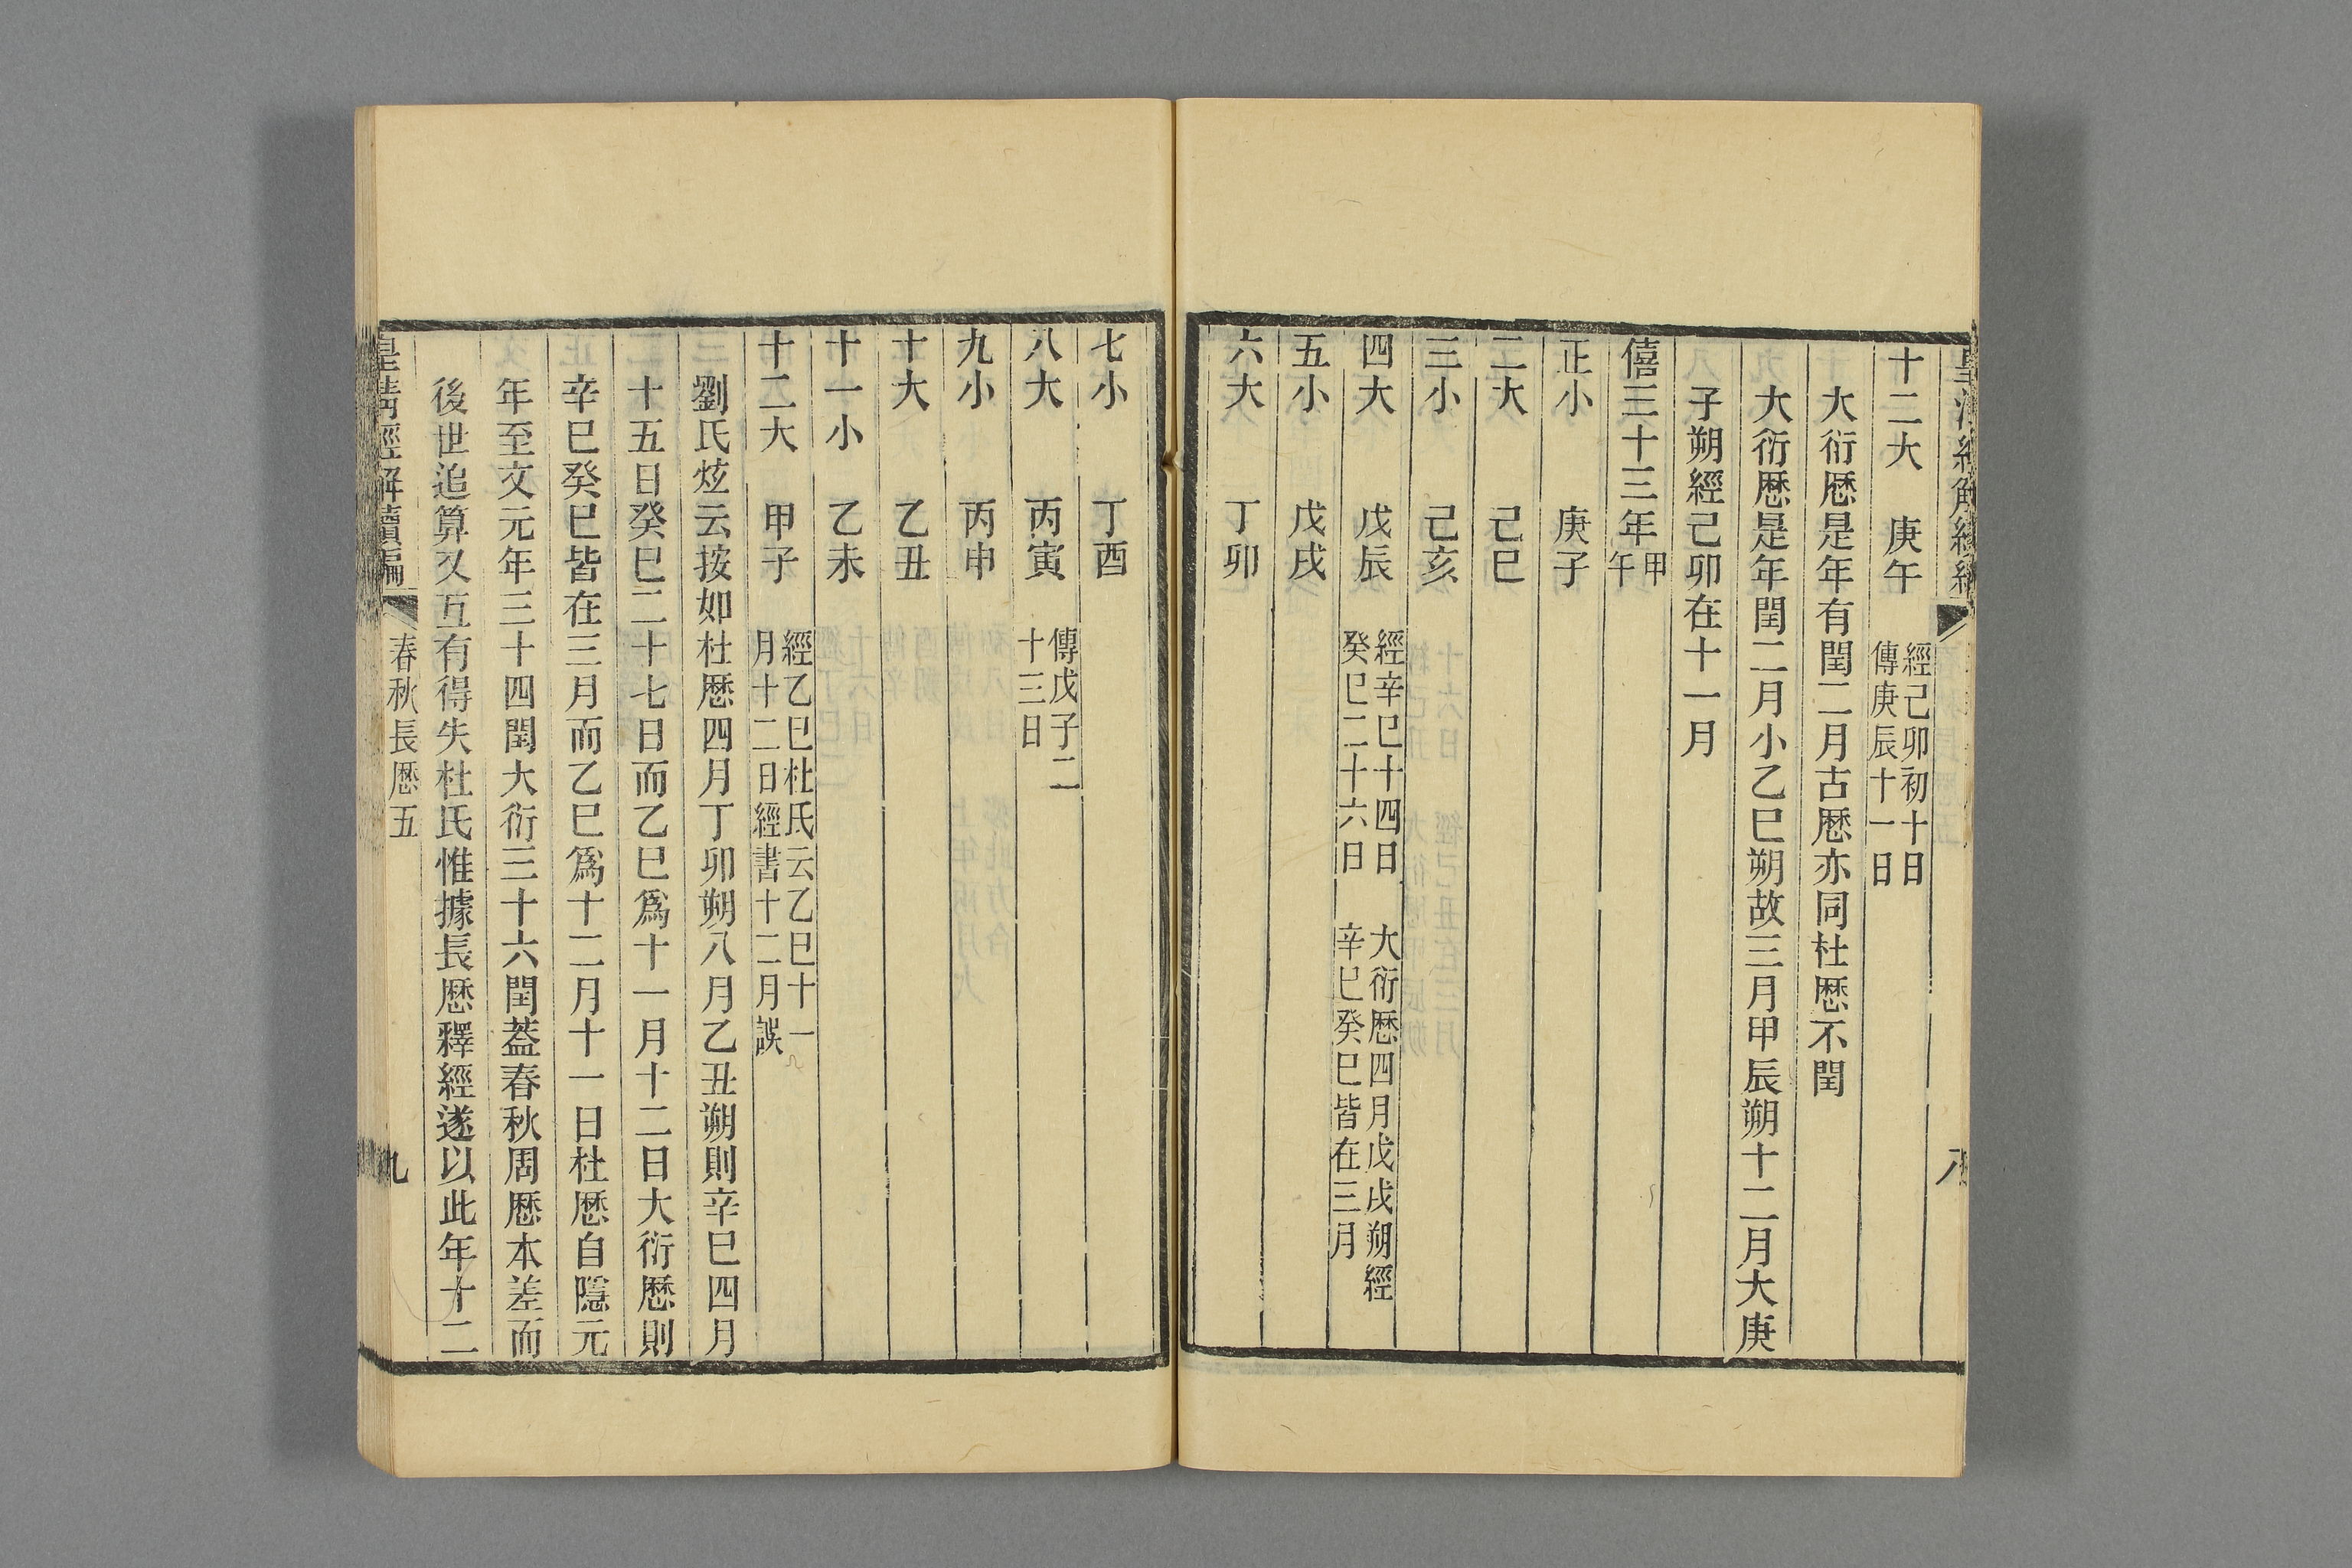 十二大　庚午　經己卯初十日
傳庚辰十一日
大衍厯是年有閏二月古厯亦同杜厯不閏
大衍厯是年閏二月小乙巳朔故三月甲辰朔十二月大庚
子朔經己卯在十一月
僖三十三年甲午
正小　庚子
二大　己巳
三小　己亥
四大　戊辰　經辛巳十四日
癸巳二十六日　大衍厯四月戊戌朔經
辛巳癸巳皆在三月
五小　戊戌
六大　丁卯
七小　丁酉
八大　丙寅　傳戊子二
十三日
九小　丙申
十大　乙丑
十一小　乙未
十二大　甲子　經乙巳杜氏云乙巳十一
月十二日經書十二月誤
劉氏炫云按如杜厯四月丁卯朔八月乙丑朔則辛巳四月
十五日癸巳二十七日而乙巳爲十一月十二日大衍厯則
辛巳癸巳皆在三月而乙巳爲十二月十一日杜厯自隱元
年至文元年三十四閏大衍三十六閏葢春秋周厯本差而
後世追算又互有得失杜氏惟據長厯釋經遂以此年十二
皇清經解續編　春秋長厯五　九